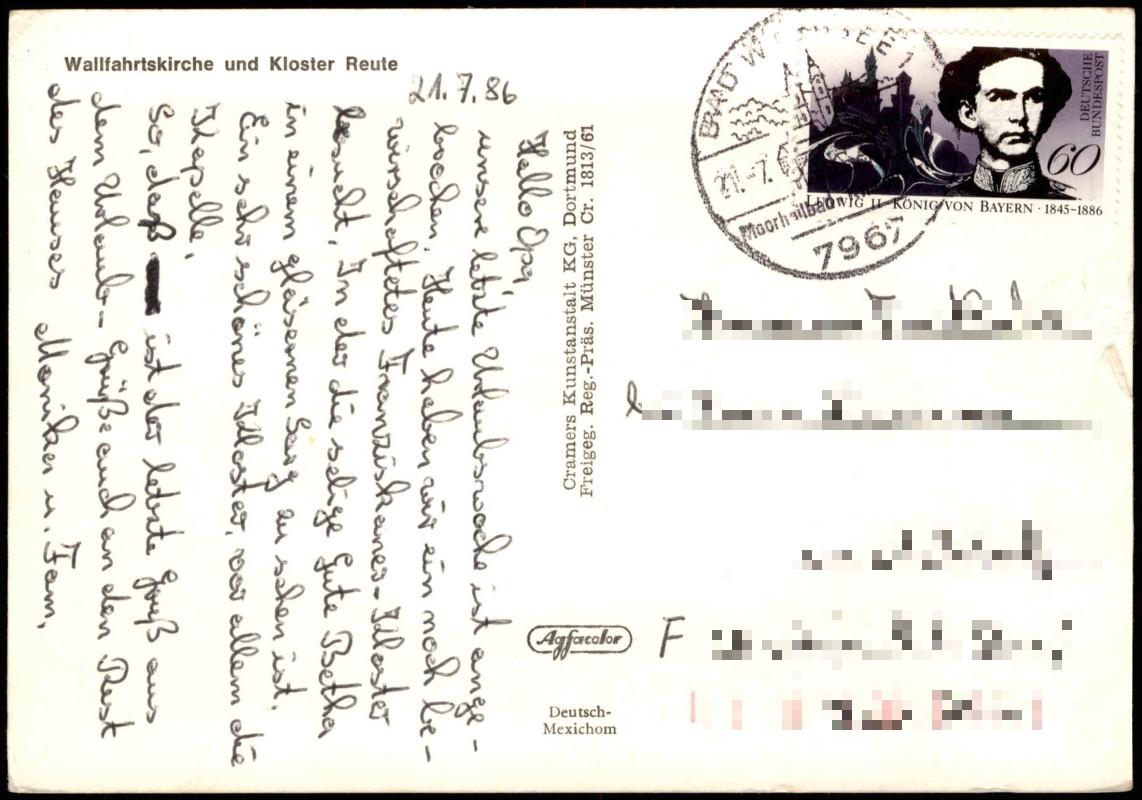 Wallfahrtskirche und Kloster Reute
21.7.86
Hallo Opa,
unsere letzte Urlaubswoche ist ange-
brochen. Heute haben wir ein noch be-
wirschaftetes Franziskaner-Kloster
besucht, In der die selige Gute Betha
in einem gläsernen Sarg zu sehen ist.
Ein sehr schönes Kloster, vor allem die
Kapelle.
So, daß ist der letzte Gruß aus
dem Urlaub - Grüße auch an den Rest
des Hauses Monika u. Fam.
Cramers Kunstanstalt KG, Dortmund
Freigeg. Reg.-Präs. Münster Cr. 1813/61
Agfacolor
Deutsch-
Mexichom
DEUTSCHE
BUNDESPOST
60
LUDWIG II · KÖNIG VON BAYERN · 1845-1886
BAD WURZACH
21.-7.
Moorheilbad
7967
F